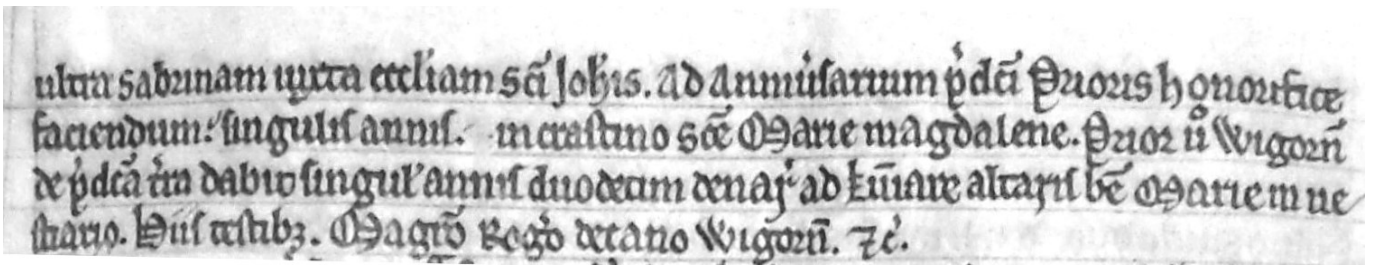 ultra Sabrinam iuxta eccl'iam Sc̄i Joh'is. Ad Anniu'sarium p'dc̄i Prioris honorifice
faciendum: singulis annis. in crastino Sc̄e Marie magdalene. Prior ů Wigorn̄
de p'dc̄a t'ra dabit singul' annis duodecim denar' ad lu̅iare altaris be̅ Marie in ue
stiario. Hiis testib3. Magr̄o Rog'o decano Wigorn̄. ⁊c'.